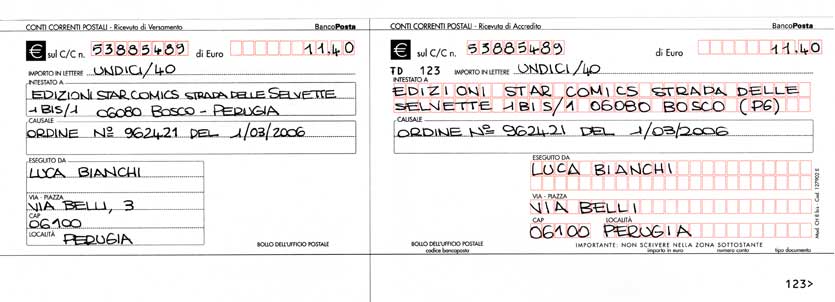 CONTI CORRENTI POSTALI - Ricevuta di Versamento BancoPosta
€ sul C/C n. 53885489 di Euro 11,40
IMPORTO IN LETTERE UNDICI/40
INTESTATO A
EDIZIONI STAR COMICS STRADA DELLE SELVETTE
1 BIS/1 06080 BOSCO - PERUGIA
CAUSALE
ORDINE Nº 962421 DEL 1/03/2006
ESEGUITO DA
LUCA BIANCHI
VIA - PIAZZA
VIA BELLI, 3
CAP
06100
LOCALITÀ
PERUGIA
BOLLO DELL'UFFICIO POSTALE
CONTI CORRENTI POSTALI - Ricevuta di Accredito BancoPosta
€ sul C/C n. 53885489 di Euro 11,40
TD 123 IMPORTO IN LETTERE UNDICI/40
INTESTATO A
EDIZIONI STAR COMICS STRADA DELLE
SELVETTE 1BIS/1 06080 BOSCO (PG)
CAUSALE
ORDINE Nº 962421 DEL 1/03/2006
ESEGUITO DA
LUCA BIANCHI
VIA - PIAZZA
VIA BELLI
CAP LOCALITÀ
06100 PERUGIA
BOLLO DELL'UFFICIO POSTALE
codice bancoposta
IMPORTANTE: NON SCRIVERE NELLA ZONA SOTTOSTANTE
importo in euro numero conto tipo documento
123>